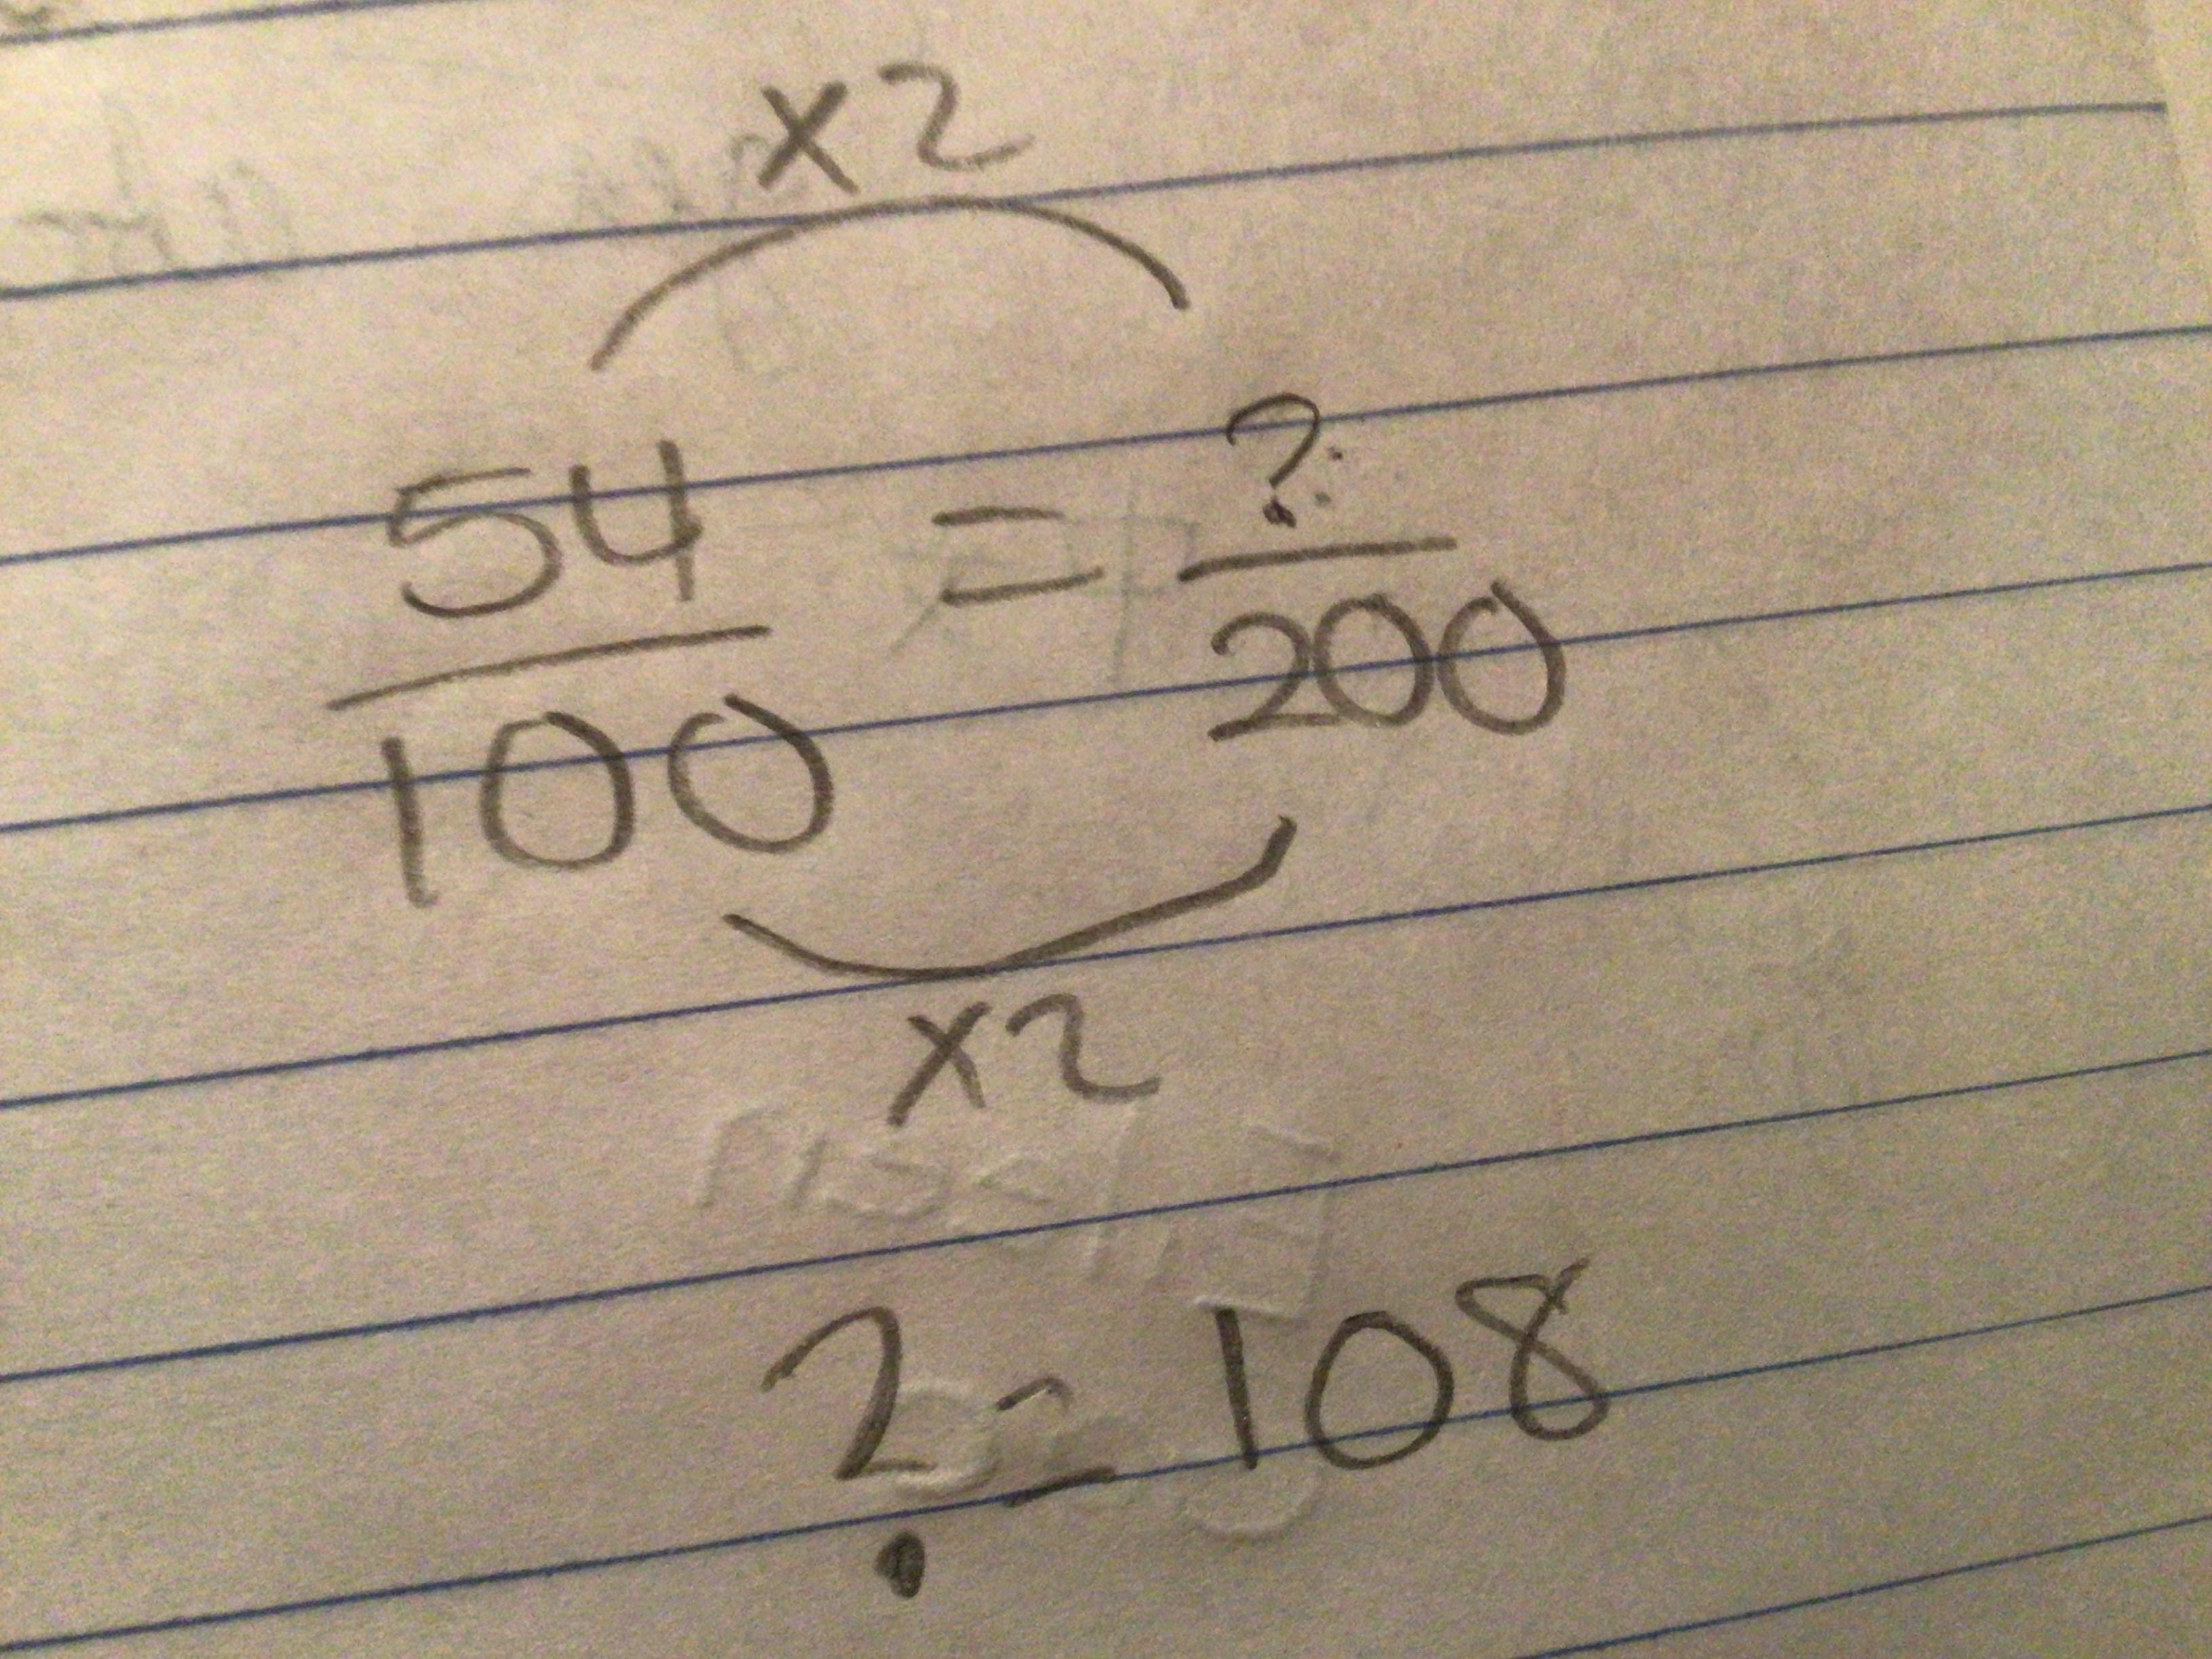 x2
54 = ?
100 200
x2
? = 108